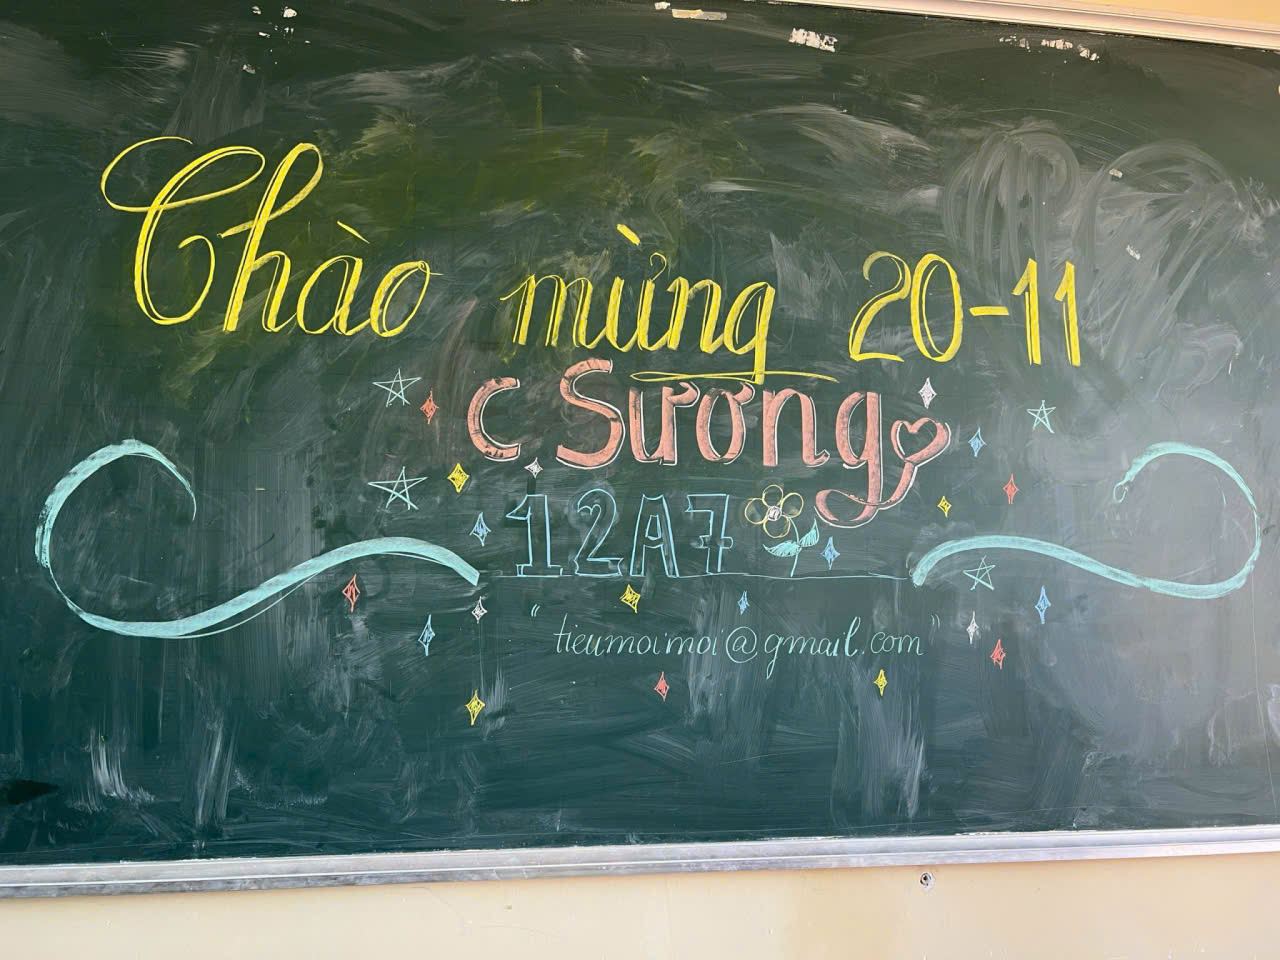 Chào mừng 20-11
c Sương
12A7
"tieumoimoi@gmail.com"